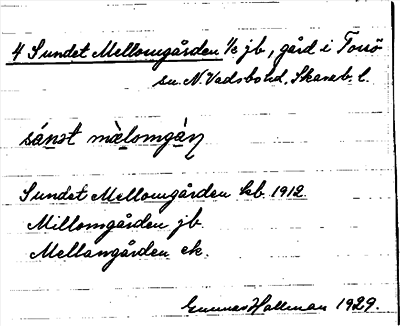 4 Sundet Mellomgården 1/2 jb, gård i Torsö
sn. N. Vadsbo hd. Skarab. l.
sánət mæ̀lomgàɳ
Sundet Mellomgården kb. 1912.
Millomgården jb.
Mellangården ek.
Gunnar Hallman 1929.